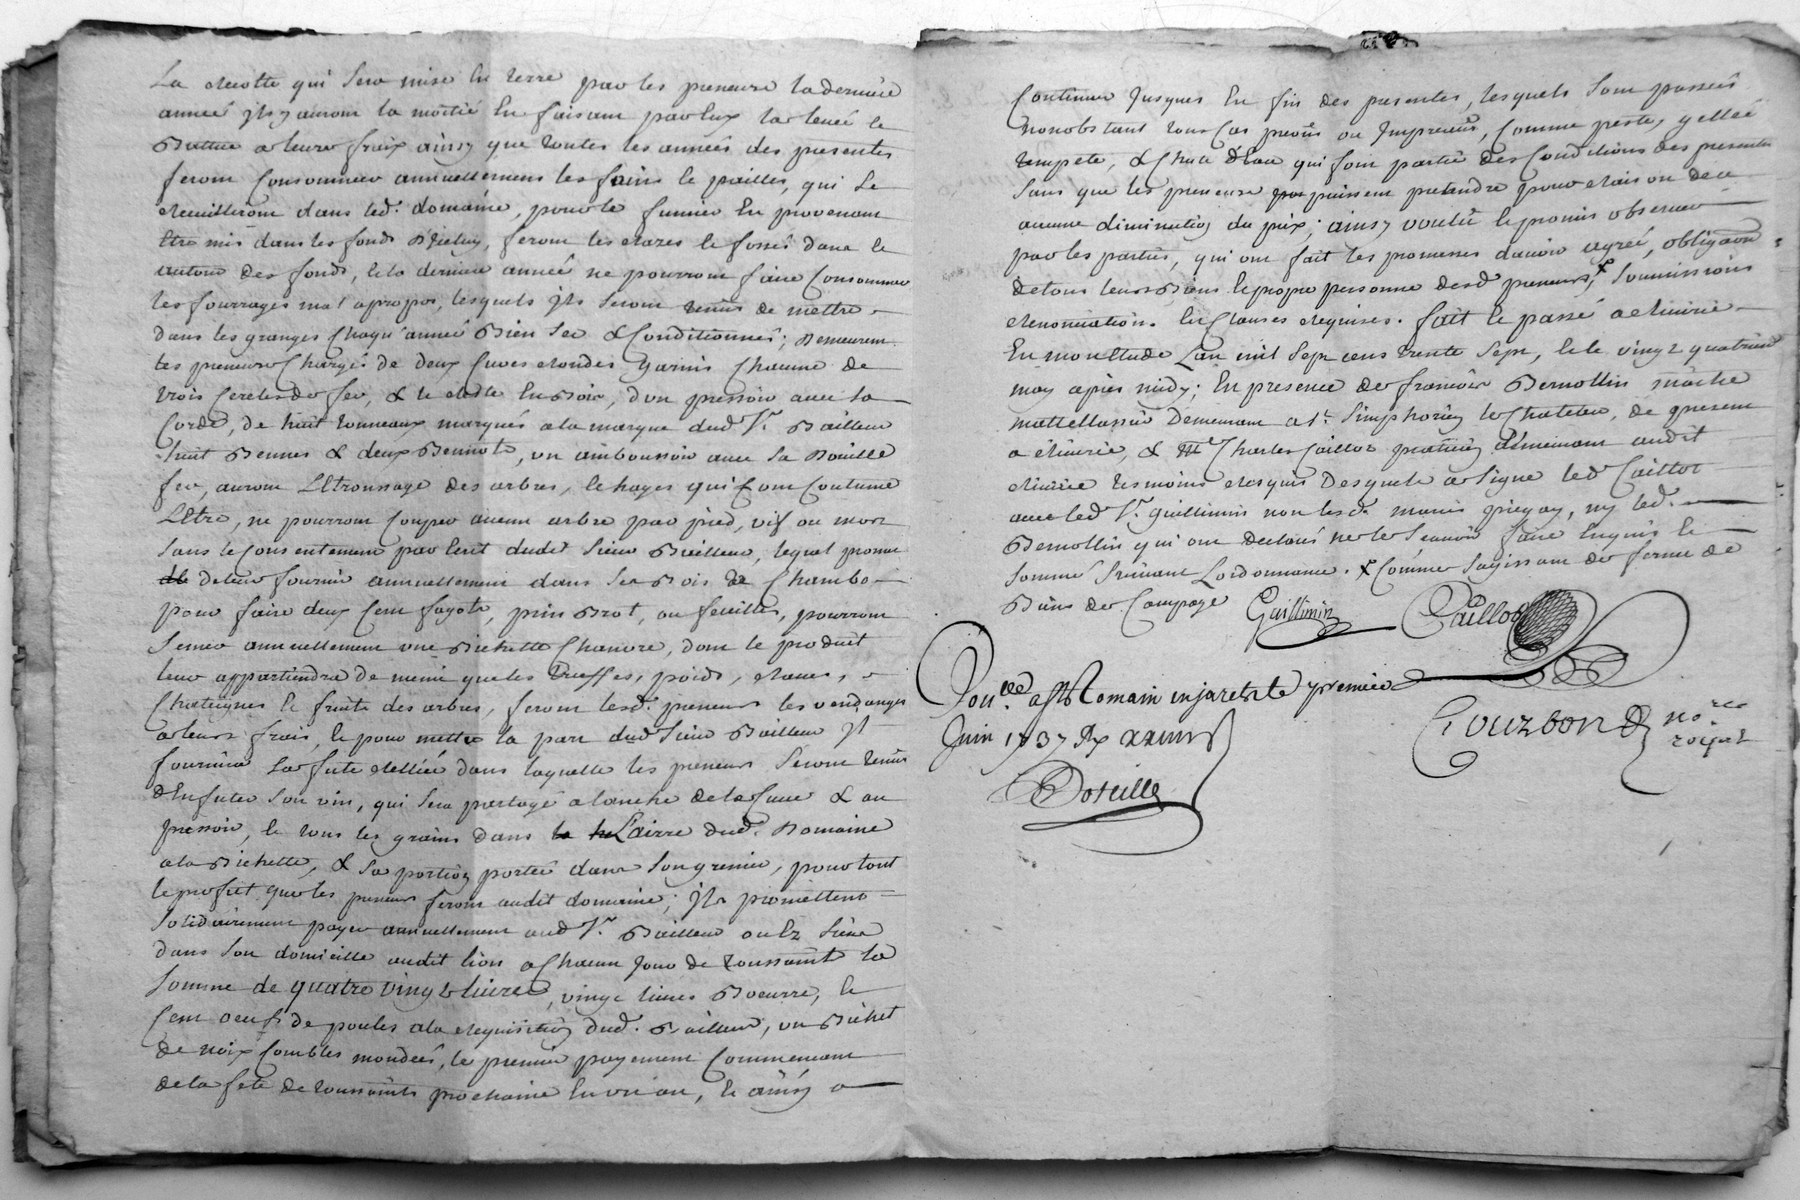 La recolte qui sera mise en terre par les preneurs la derniere
année jls y auront la moitié En faisant par Eux la levée le
Battue a leurs fraix ainsy que toutes les années des presentes
feront Consommer annuellement les foins le pailles, qui se
recuilleront dans led. domaine, pour le fumier En provenant
Etre mis dans les fonds d'Jceluy, feront les razes le fossés dans le
autour des fonds, le la derniere année ne pourront faire Consommer
les fourrages mal apropos, lesquels jls seront tenus de mettre
dans les granges Chaqu'année Bien sec & Conditionnés; Demeurent
les preneurs Chargés de deux Cuves rondes garnis Chacune de
trois Cercles de fer, & le reste En Bois, d'un pressoir avec sa
Corde, de huit tonneaux marqués a la marque dud. Sr. Bailleur
huit Bennes & deux Bennots, un embossoir avec sa Douille
fer, auront L'Etronssage des arbres, le hayes qui sont Coutume
L'Etre, ne pourront Couper aucun arbre par pied, vif ou mort
sans le Consentement par Ecrit dudit sieur Bailleur, lequel promet
de leur fournir annuellement dans ses Bois de Chambo
pour faire deux Cent fagots, pin Brot, ou feuilles, pourront
semer annuellement une Bichette Chanvre, dont le produit
leur appartiendra de meme que les Truffes, poids, raves,
Chataignes le fruits des arbres, feront lesd. preneurs les vendanges
a leurs frais, le pour mettre la part dud. sieur Bailleur Jl
fournira sa futte relliée dans laquelle les preneurs seront tenus
d'Enfuter son vin, qui sera partagé a lanche de la Cuve & au
pressoir, le tous les grains dans L'airre dud. Domaine
a la Bichette, & sa portion portée dans son grenier, pour tout
le profit que les preneurs feront audit domaine; jls promettent
solidairement payer annuellement aud. Sr. Bailleur ou Ez siens
dans son domicille audit lion a Chacun jour de toussaint la
somme de quatre vingt livres, vingt livres Beurre, le
Cent oeufs de poules a la requisition dud. Bailleur, un Bichet
de noix Combles mondées, le premier payement Commencant
de la fete de toussaints prochaine En un an, le ainsy a
Continuer Jusques En fin des presentes, lesquels sont passées
nonobstant tous Cas prevûs ou Jmprevûs, Comme peste, gellée
tempete, & Chute d'Eau qui font partie des Conditions des presentes
sans que les preneurs puissent pretendre pour raison de ce
aucune diminution du prix; ainsy voulu le promis observer
par les parties, qui ont fait les promesses d'avoir agreé, obligaon
de tous leurs Biens le propre personne desd. preneurs, x soumissions
renonciation. En Clauses requises. fait le passé a rivirie
En mon Etude L'an mil sept cens trente sept, le le vingt quatrieme
may après midy; En presence de francois Bernollin maitre
mattellassier Demeurant a St. Simphorien le Chateau, de present
a rivirie, & Me Charles Caillot praticien demeurant audit
rivirie temoins requis Desquels a signé led. Caillot
avec led. Sr. Guillimin non lesd. mariés pigay, ny led.
Bernollin qui ont declaré ne le scavoir faire Enquis le
sommé suivant L'ordonnance. x Comme s'agissant de ferme de
Biens de Campagne
Guillimin
Caillot
Con.lle a St Romain en jarest le premier
Juin 1737
Doreille
Gourbon
No.re
royal